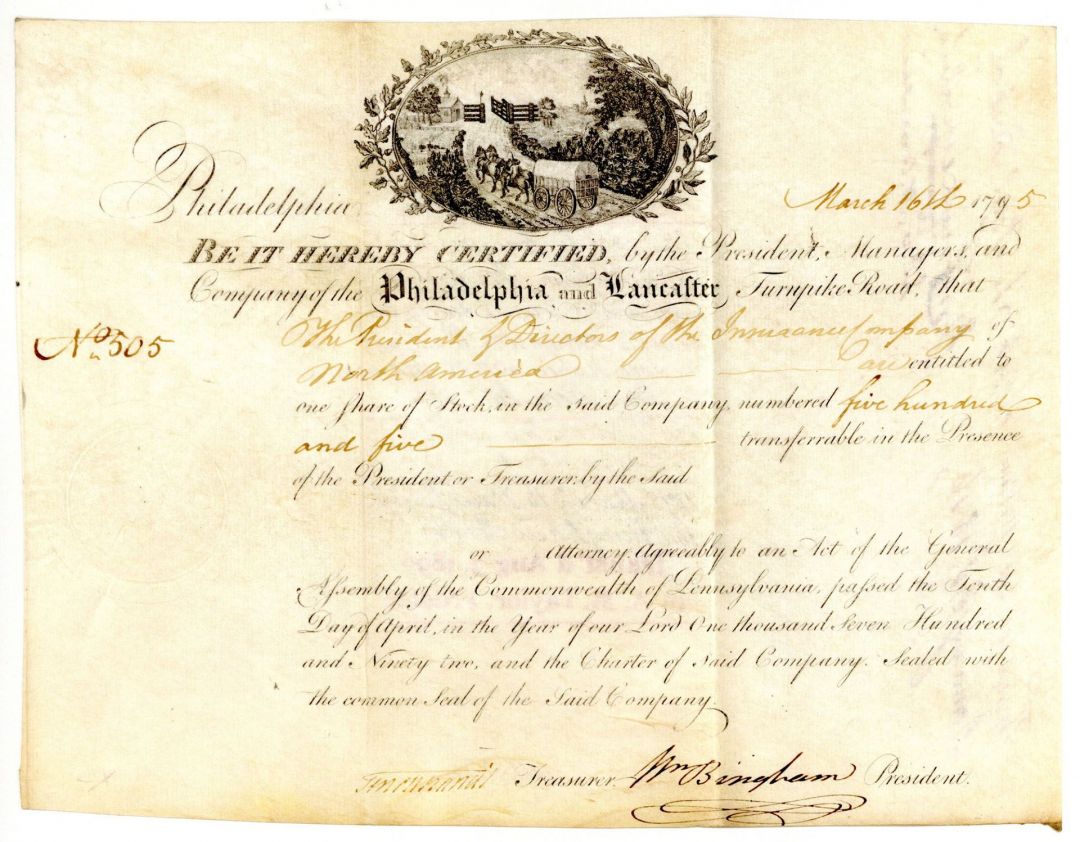 Philadelphia March 16th 1795
BE IT HEREBY CERTIFIED, by the President, Managers, and
Company of the Philadelphia and Lancaster Turnpike Road, that
No. 505
The President & Directors of the Insurance Company of
North America are entitled to
one Share of Stock, in the said Company, numbered five hundred
and five transferrable in the Presence
of the President or Treasurer, by the Said
or Attorney, Agreeably to an Act of the General
Assembly of the Commonwealth of Pennsylvania, passed the Tenth
Day of April, in the Year of our Lord One thousand Seven Hundred
and Ninety two, and the Charter of said Company. Sealed with
the common Seal of the Said Company
Treasurer. Wm Bingham President.